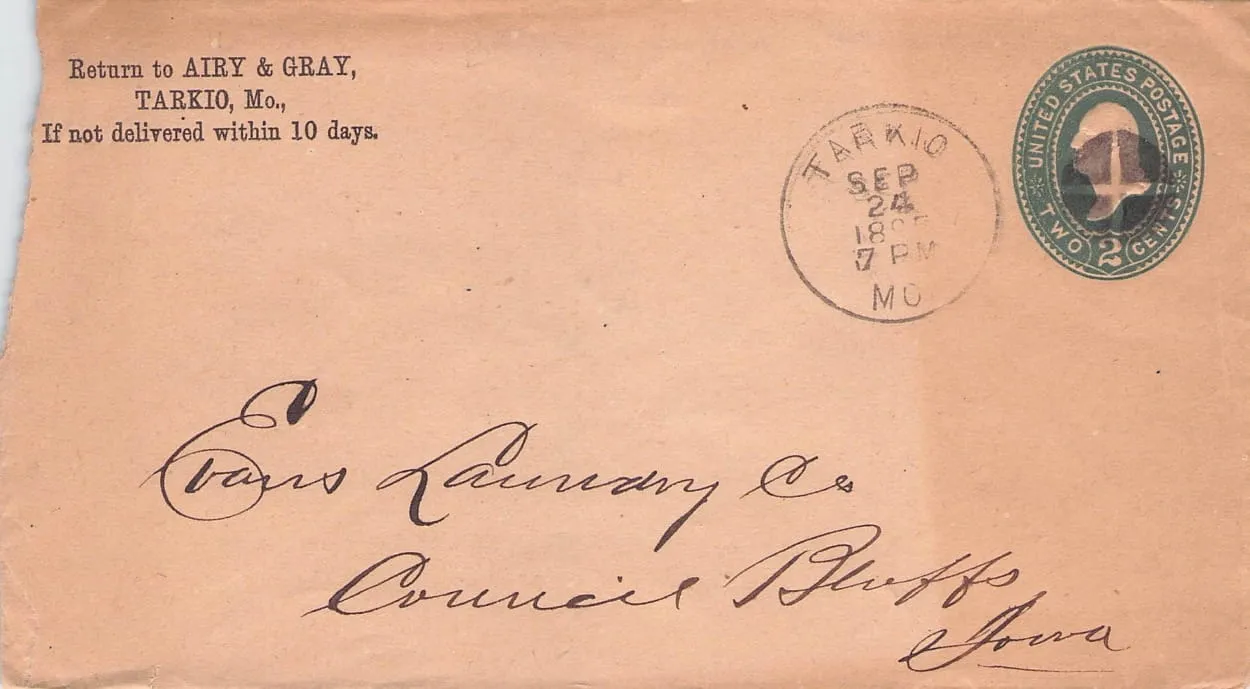 Return to AIRY & GRAY,
TARKIO, Mo.,
If not delivered within 10 days.
TARKIO
SEP
24
7 PM
MO
UNITED STATES POSTAGE
TWO 2 CENTS
Evans Laundry Co
Council Bluffs
Iowa